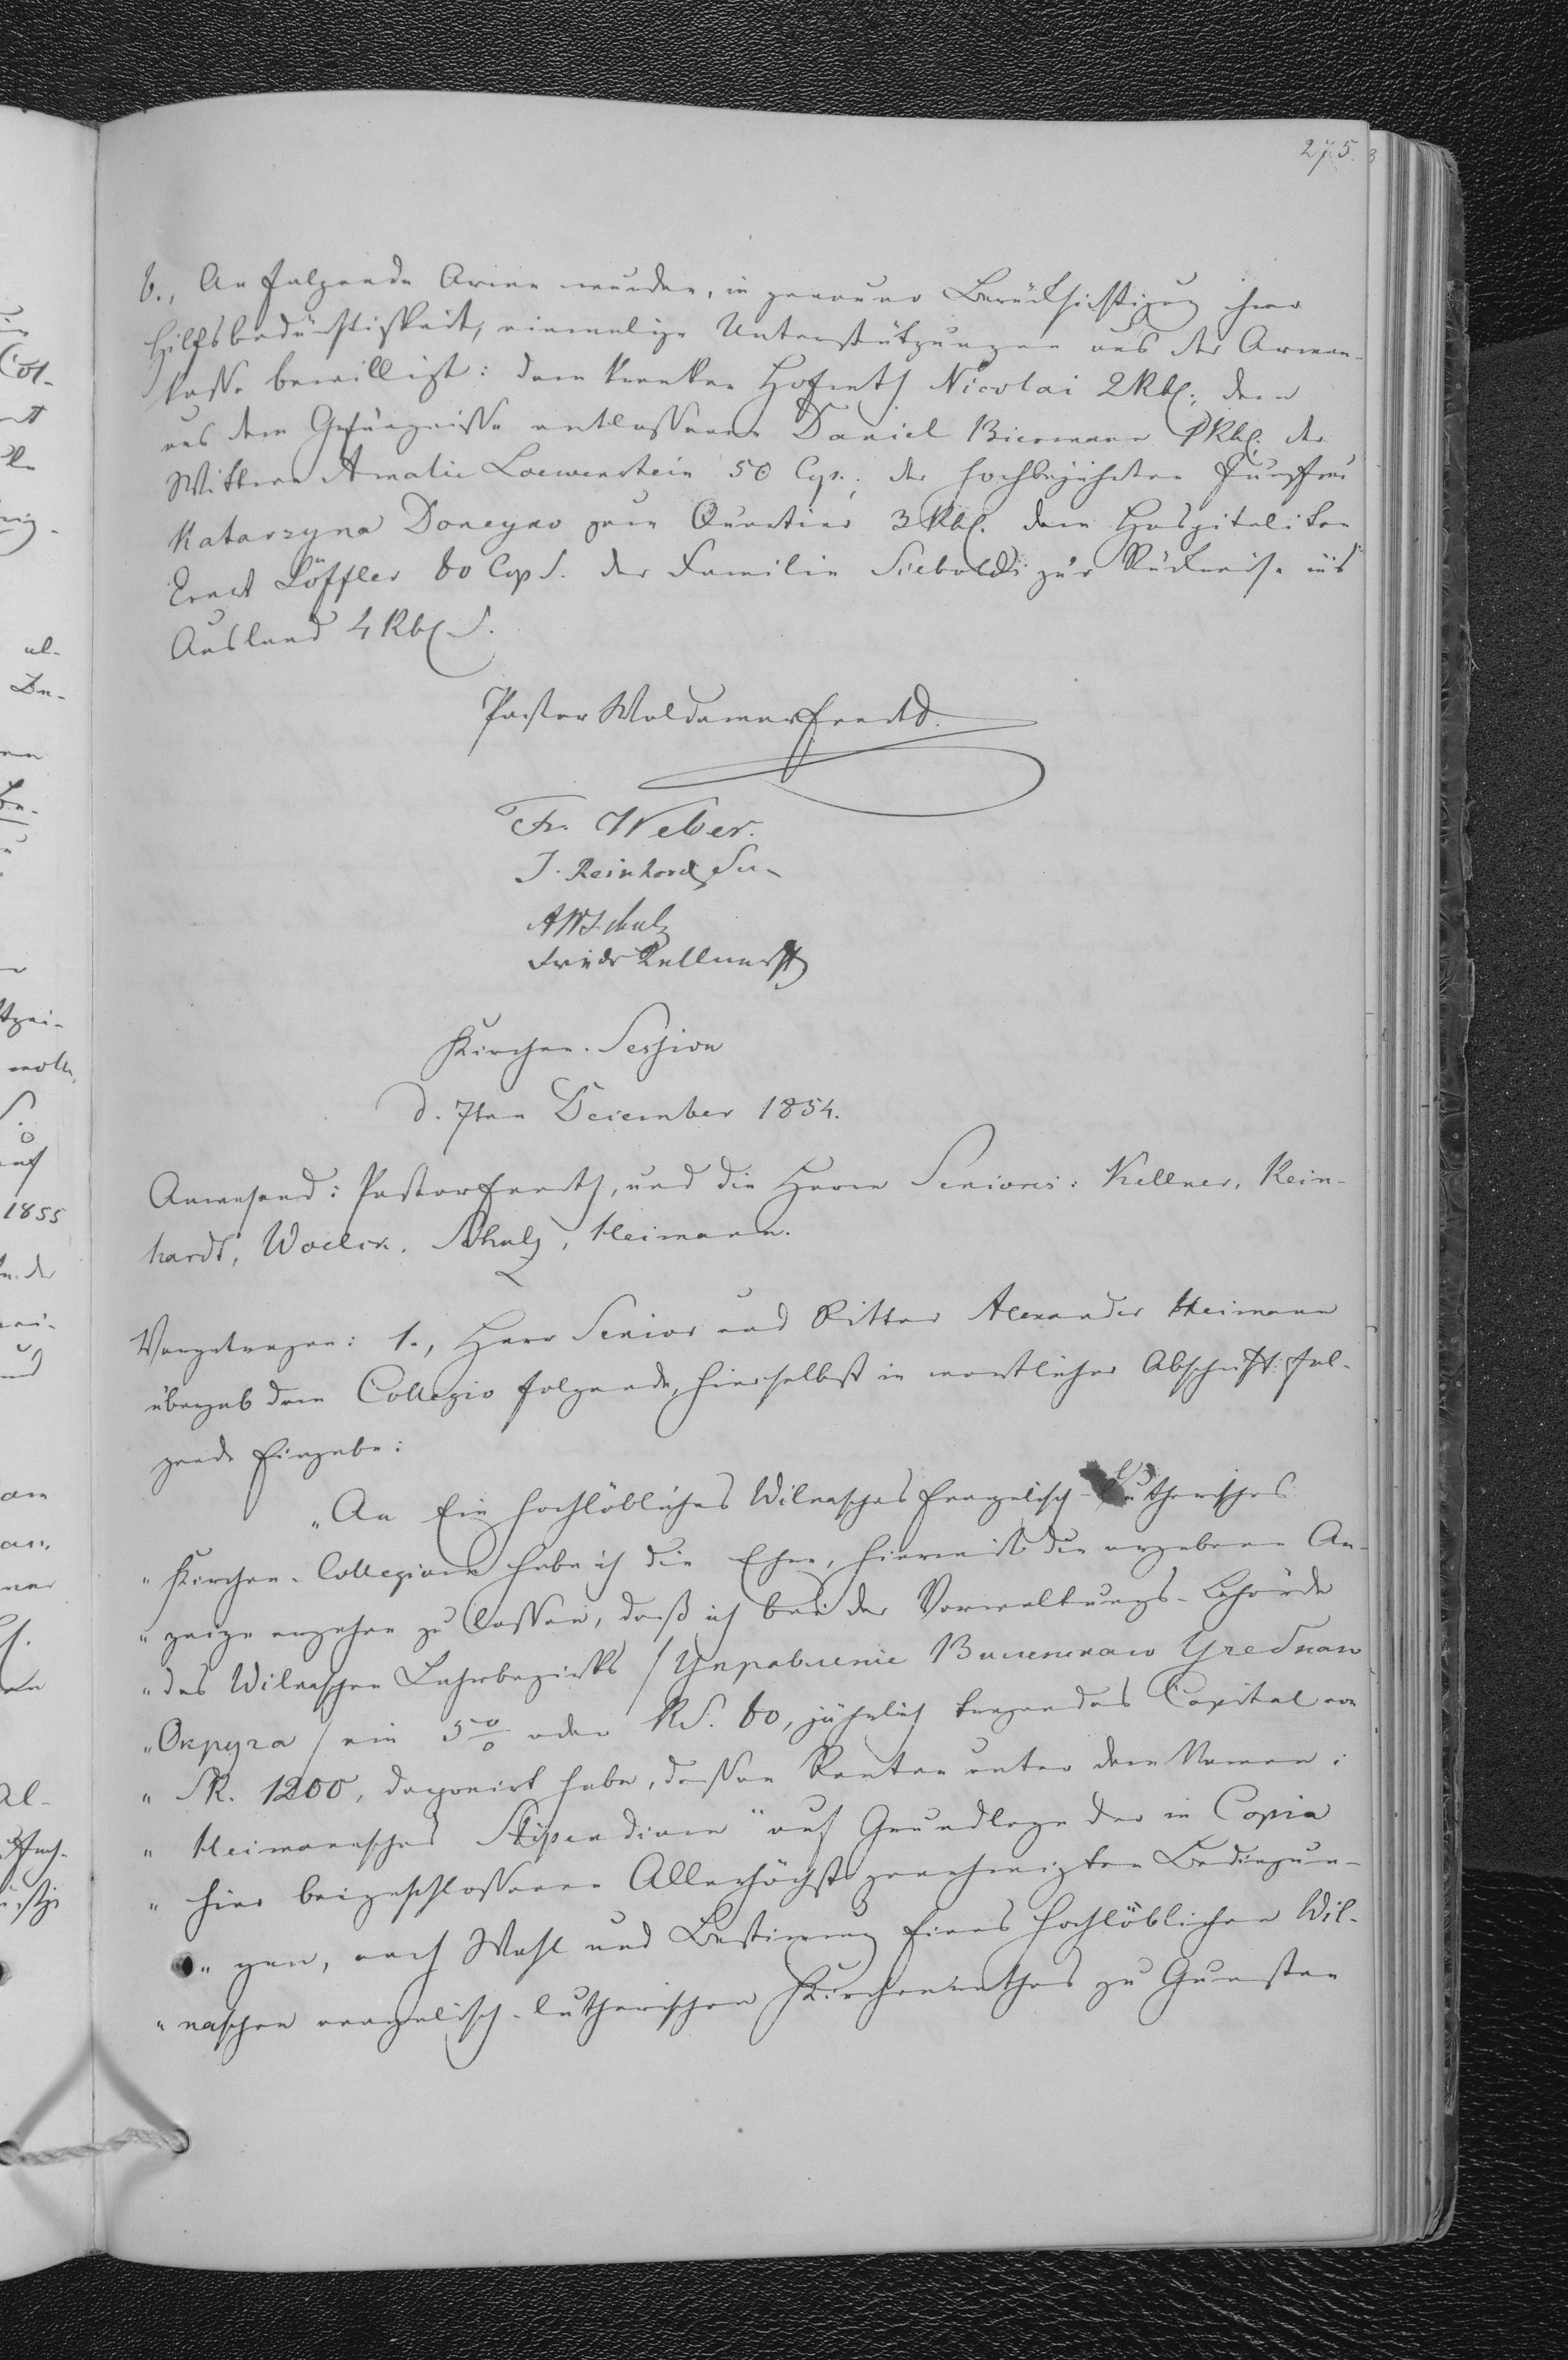 275.
6., An folgende Arme wurden, in genauer Berücksichtigung ihrer
Hilfsbedürftigkeit, einmalige Unterstützungen aus der Armen-
kasse bewilligt: dem kranken Hofrath Nicolai 2 Rbl; dem
aus dem Gefängnisse entlassenen Daniel Biermann 1 Rbl. der
Wittwe Amalie Loewenstein 50 Cop.; der hochbejahrten Jungfrau
Katarzyna Doneyko zum Quartier 3 Rbl. dem Hospitaliten
Ernst Löffler 60 Cop S. der Familie Siebold zur Rückreise ins
Ausland 4 Rbl S.
Pastor Woldemar
Fr. Weber.
J. Reinhard Sen.
A W Schulz
Friedr Kellner
Kirchen-Session
d. 7ten December 1854.
Anwesend: Pastor, und die Herrn Seniores: Kellner, Rein-
hardt, Woelck, Schulz, Heimann.
Vorgetragen: 1., Herr Senior und Ritter Alexander Heimann
übergab dem Collegio folgende, hierselbst in wortlicher Abschrift fol-
gende Eingabe:
„An Ein hochlöbliches Wilnasches Evangelisch-Lutherisches
„Kirchen-Collegium habe ich die Ehre, hiermit die ergebene An-
„zeige ergehen zu lassen, daß ich bei der Verwaltungs-Behörde
„des Wilnaschen Lehrbezirks / Управленiе Виленскаго Учебнаго
„Округа / ein 5% oder RS. 60, jährlich tragendes Capital von
„SR. 1200, deponirt habe, dessen Renten unter dem Namen:
„Heimannsches Stipendium" auf Grundlage der in Copia
„hier beigeschlossenen Allerhöchst genehmigten Bedingun-
„gen, nach Wahl und Bestimmung Eines hochlöblichen Wil-
„naschen evangelisch-lutherischen Kirchenrathes zu Gunsten